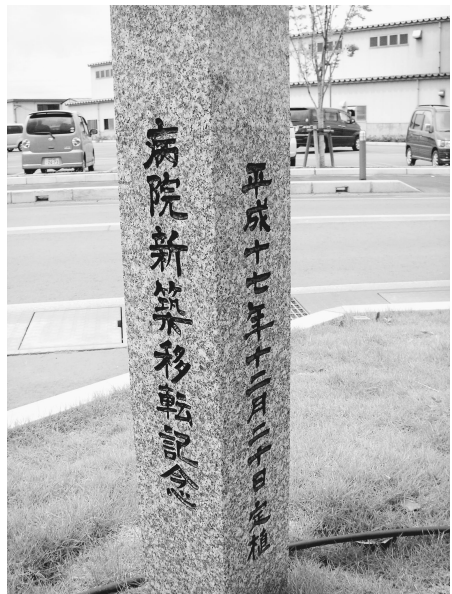 病院新築移転記念
平成十七年十二月二十日定植